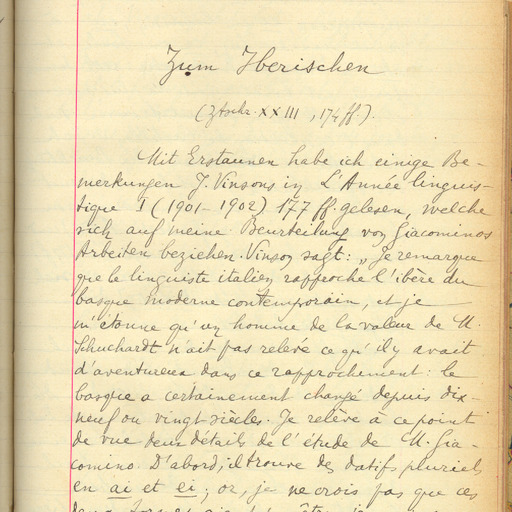 Zum Iberischen
(Ztschr. XXIII, 174 ff.).
Mit Erstaunen habe ich einige Be-
merkungen J. Vinsons in L'Année linguis-
tique I (1901-1902) 177 ff. gelesen, welche
sich auf meine Beurteilung von Giacominos
Arbeiten beziehen. Vinson sagt: „Je remarque
que le linguiste italien rapproche l'ibère du
basque moderne contemporain, et je
m'étonne qu'un homme de la valeur de M.
Schuchardt n'ait pas relevé ce qu'il y avait
d'aventureux dans ce rapprochement: le
basque a certainement changé depuis dix-
neuf ou vingt siècles. Je relève à ce point
de vue deux détails de l'étude de M. Gia-
comino. D'abord, il trouve des datifs pluriels
en ai et ei; or, je ne crois pas que ces